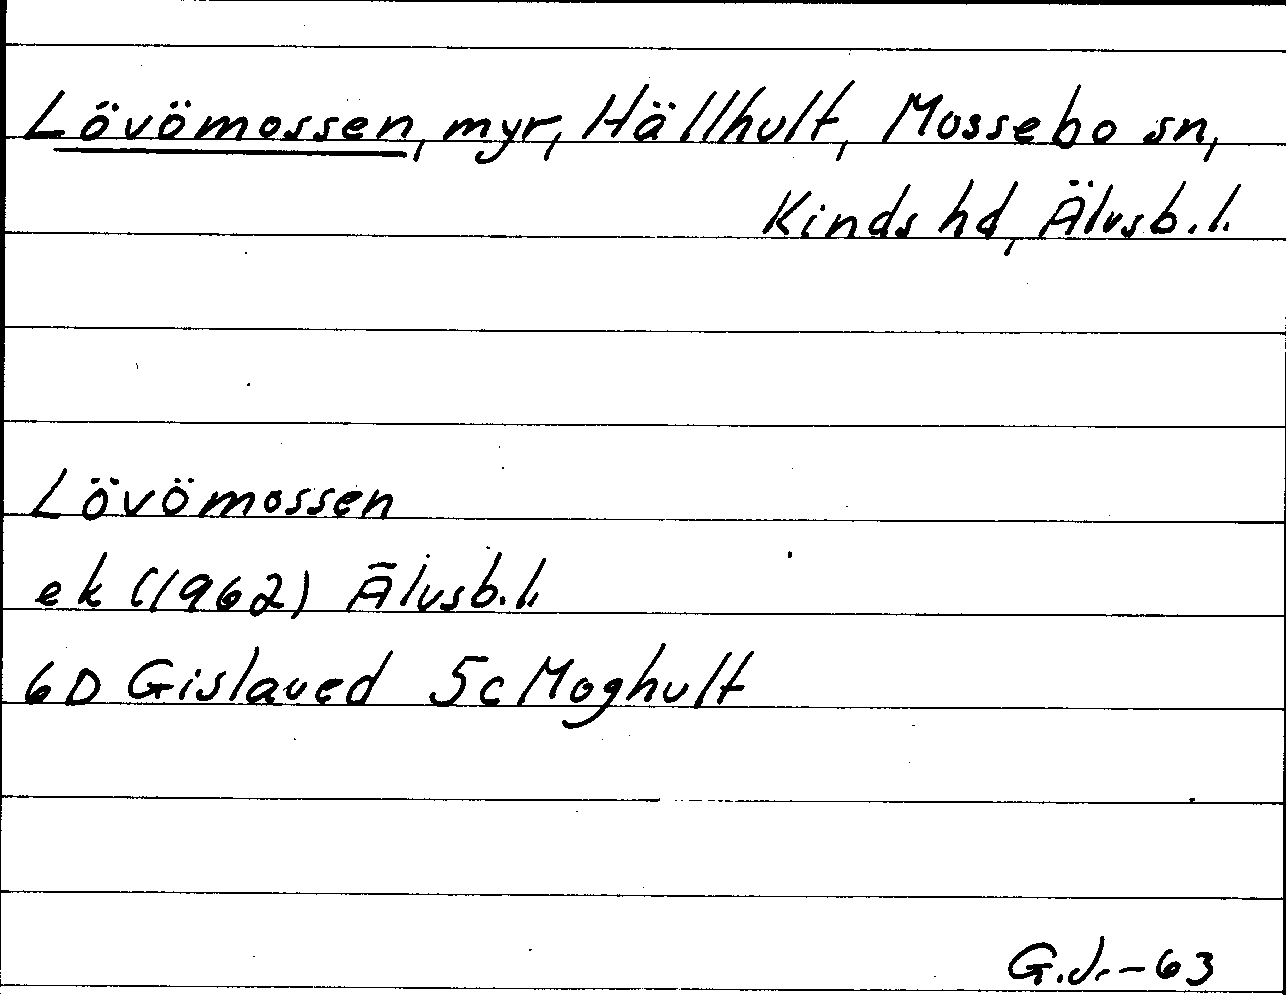 Lövömossen, myr, Hällhult, Mossebo sn,
Kinds hd, Älvsb.l.
Lövömossen
ek (1962) Älvsb.l.
6D Gislaved 5c Moghult
G.J.-63